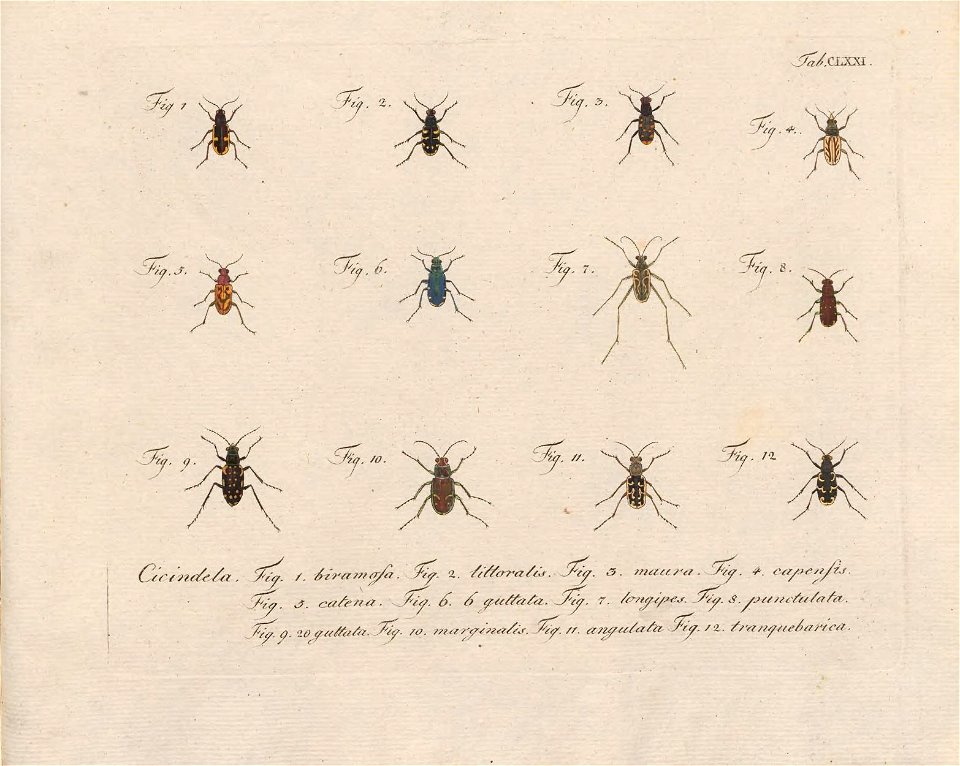 Tab. CLXXI.
Fig 1
Fig. 2.
Fig. 3.
Fig. 4.
Fig. 5.
Fig. 6.
Fig. 7.
Fig. 8.
Fig. 9.
Fig. 10.
Fig. 11.
Fig. 12
Cicindela. Fig. 1. biramoſa. Fig. 2. littoralis. Fig. 3. maura. Fig. 4. capenſis.
Fig. 5. catena. Fig. 6. 6 guttata. Fig. 7. longipes. Fig. 8. punctulata.
Fig. 9. 20 guttata. Fig. 10. marginalis. Fig. 11. angulata Fig. 12. tranquebarica.